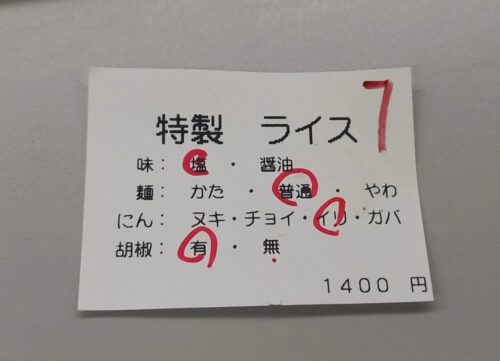 特製 ライス 7
味： 塩 ・ 醤油
麺： かた ・ 普通 ・ やわ
にん： ヌキ・チョイ・イリ・ガバ
胡椒： 有 ・ 無
1400 円